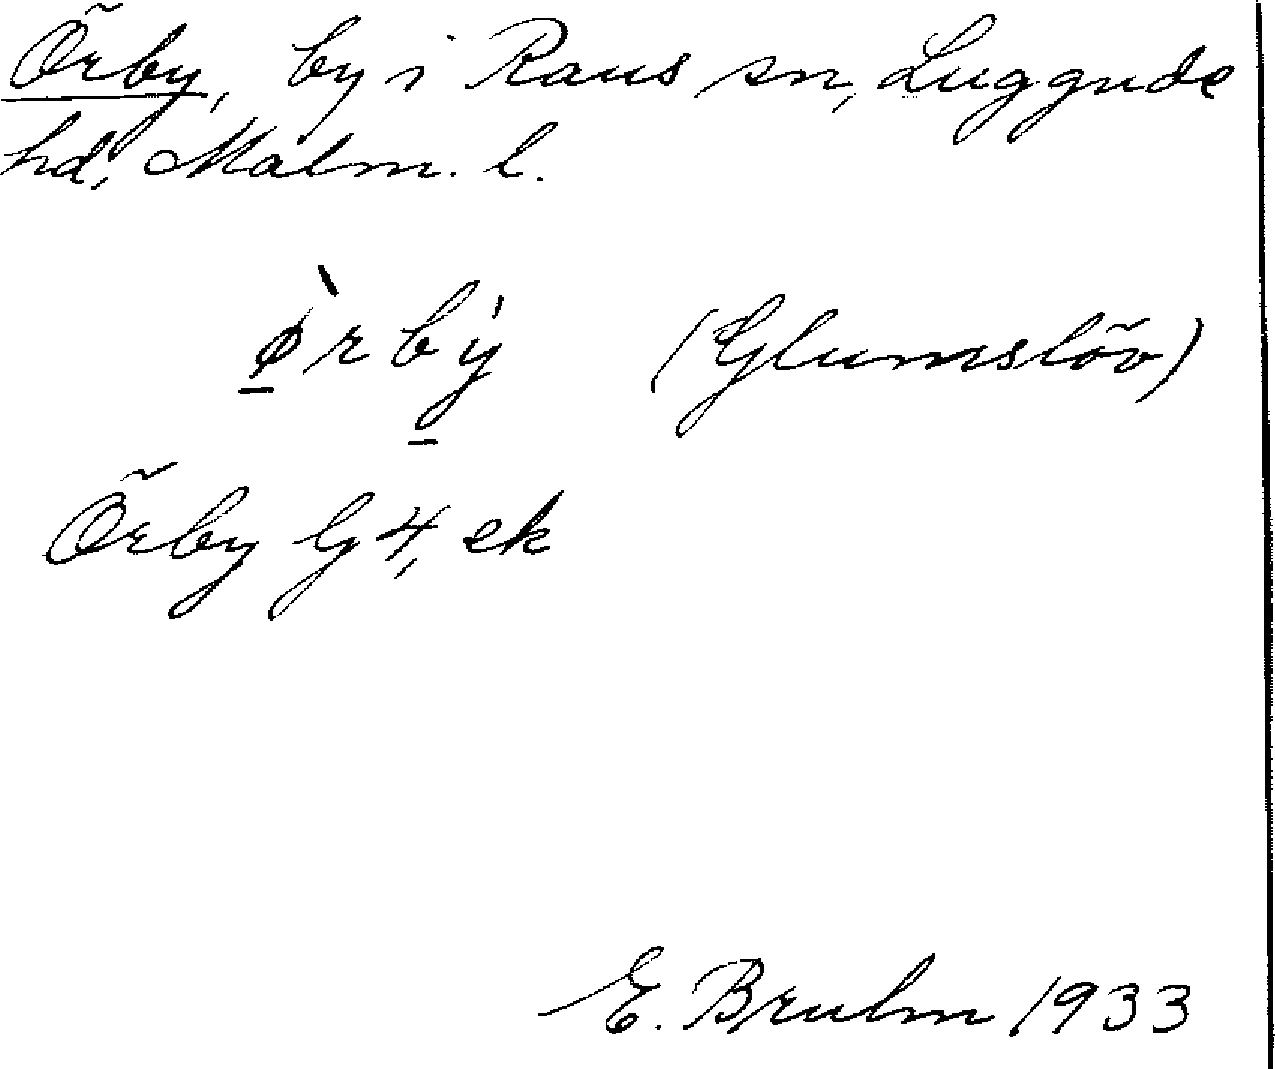 Örby, by i Raus sn, Luggude
hd, Malm. l.
ø̱̀rbý̱ (Glumslöv)
Örby G 4, ek
E. Bruhn 1933